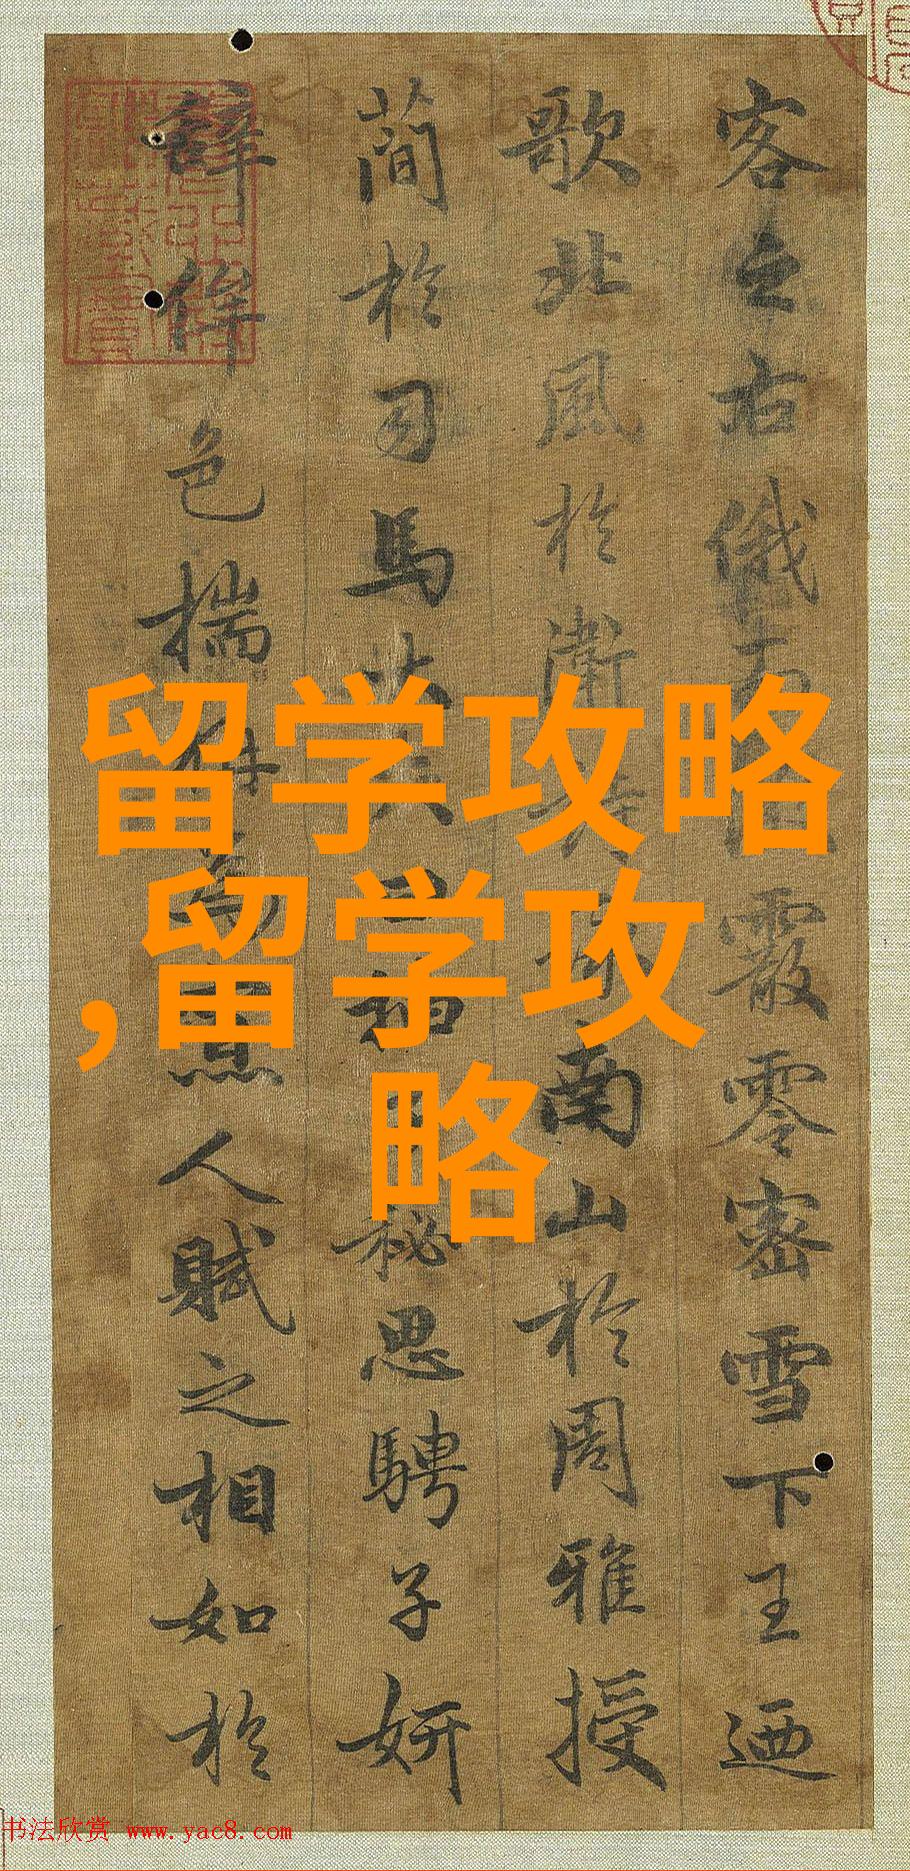 客之右俄而霰零密雪下王迺
歌北風於衛南山於周雅授
簡於司馬大夫曰抽秘思騁子妍
辭侔色揣稱為人賦之相如於
留学攻略
,留学攻
略
书法欣赏 www.yac8.com